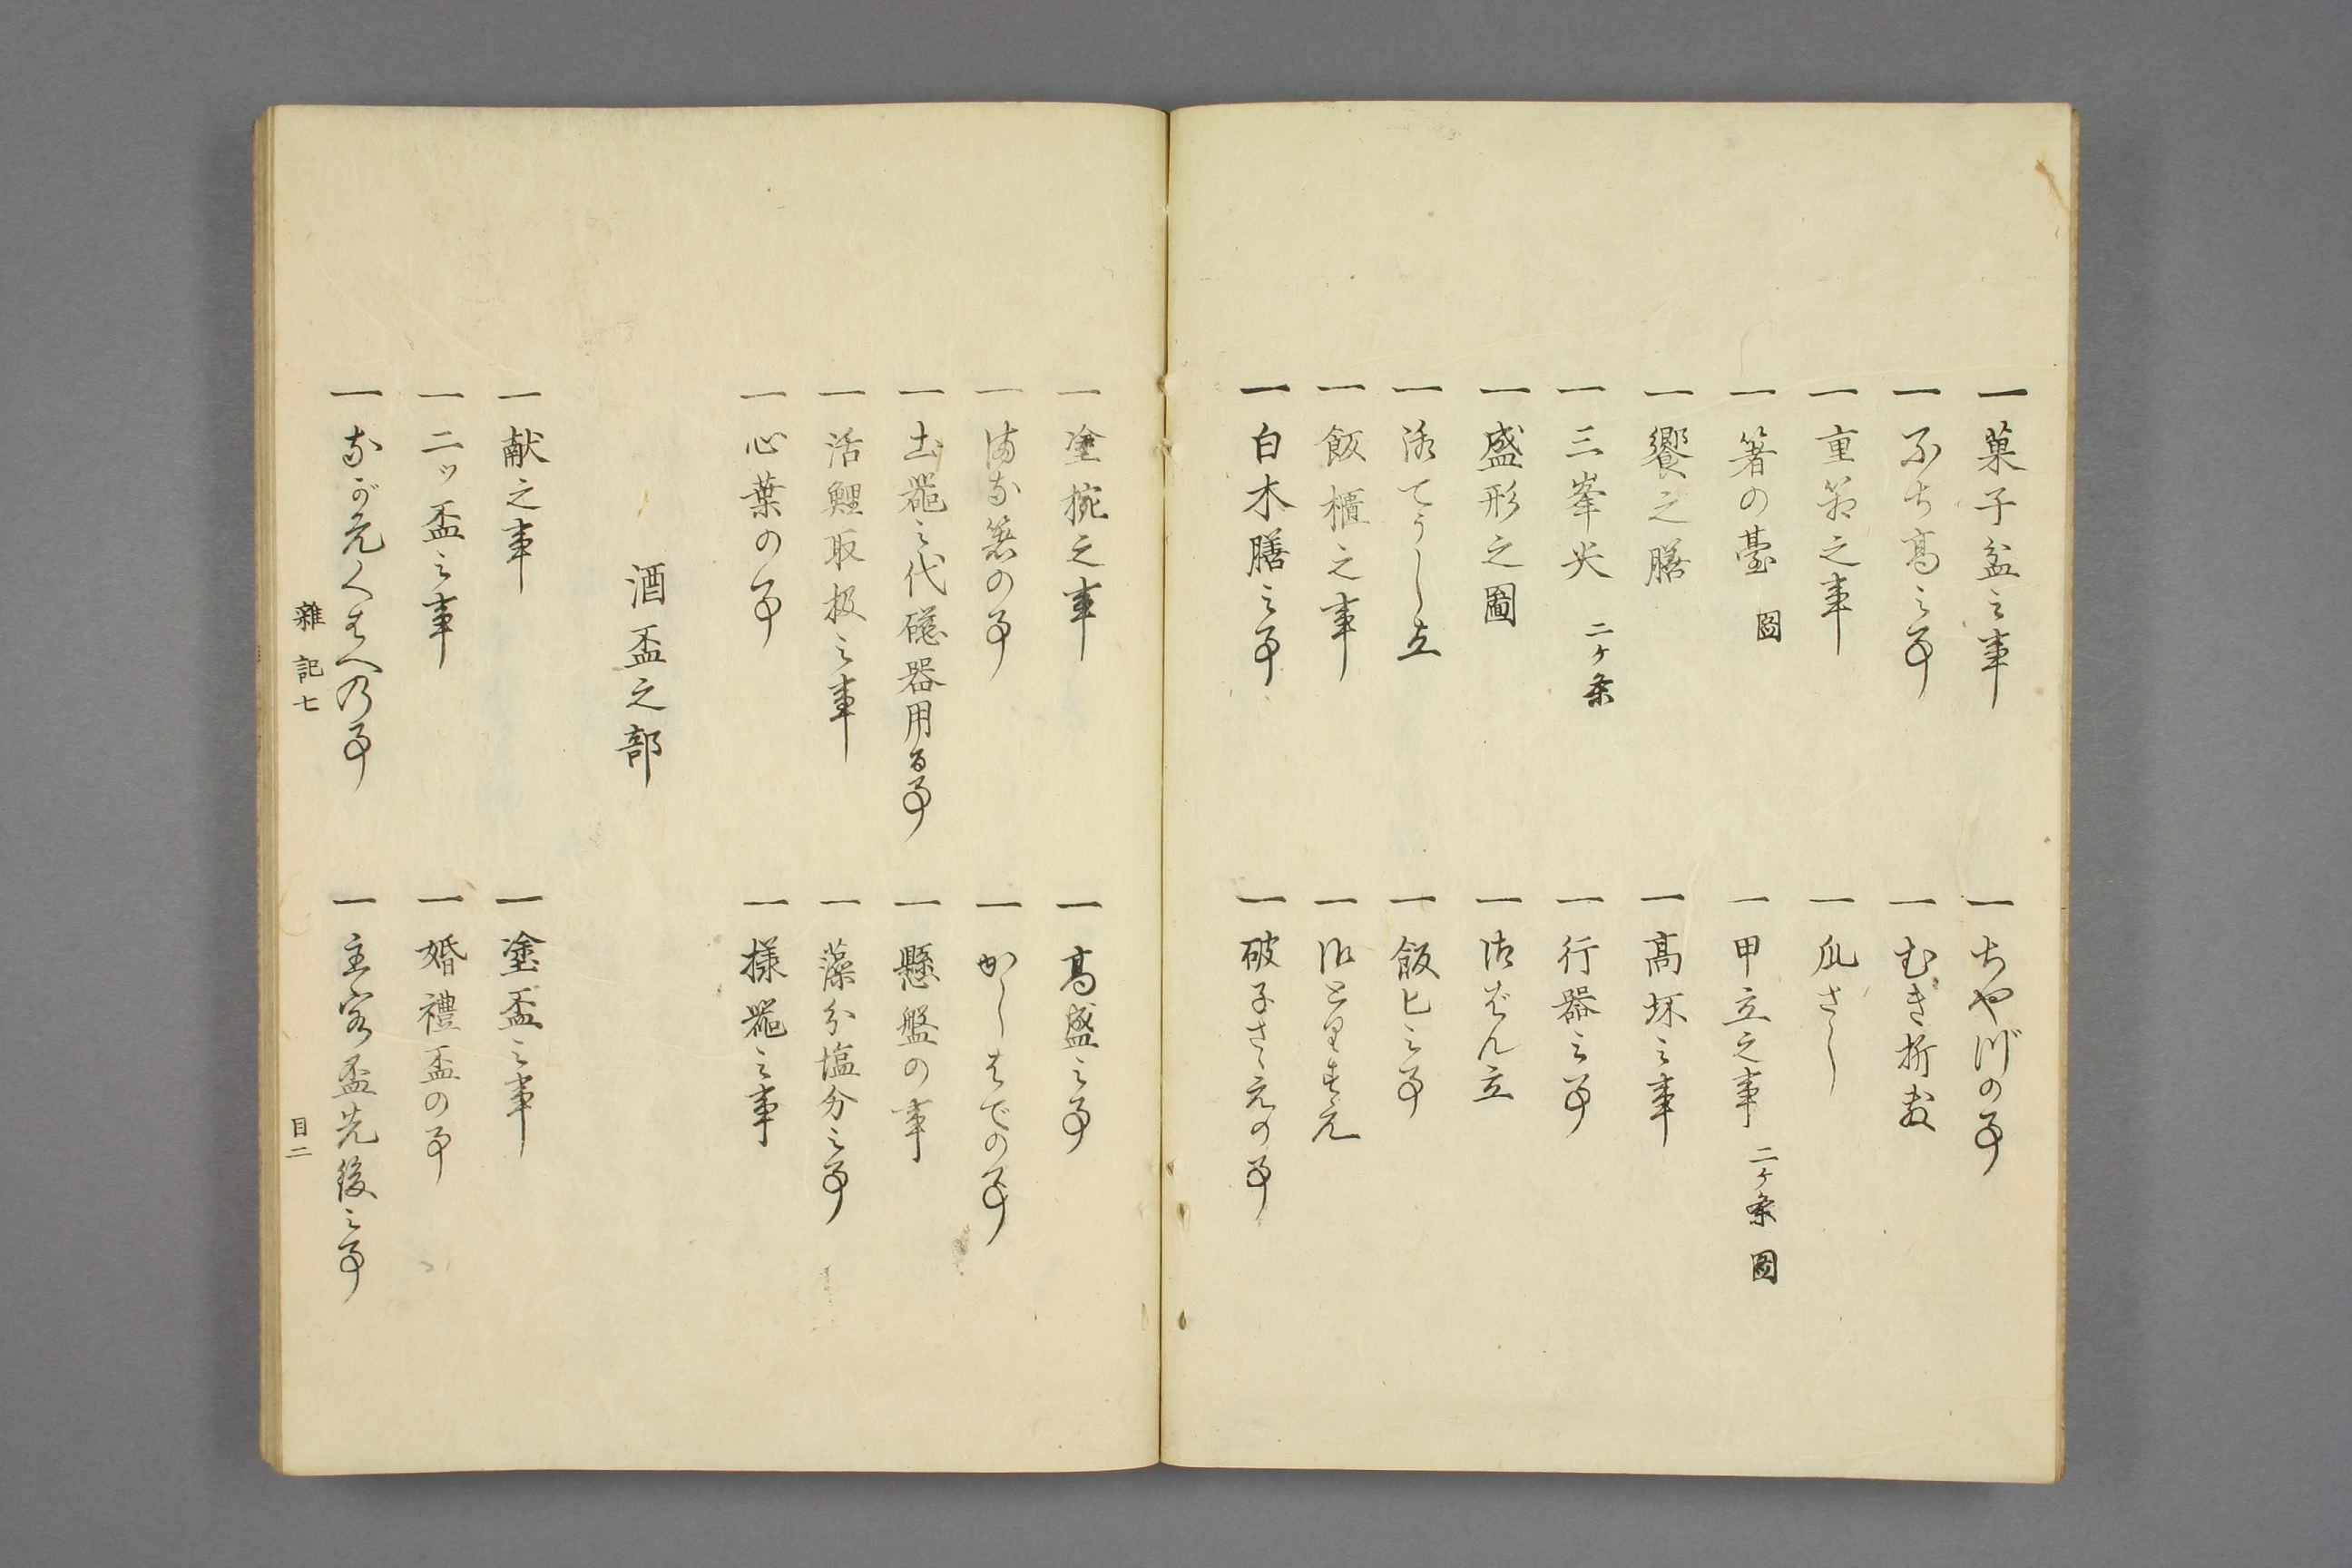 一 菓子盆之事
一 ちやづの事
一 ふち高之事
一 むき折敷
一 重箱之事
一 瓜さし
一 箸の臺 圖
一 甲立之事 二ケ条 圖
一 饗之膳
一 高坏之事
一 三峯尖 二ケ条
一 行器之事
一 盛形之圖
一 御ぜん立
一 湯てうし立
一 飯匕之事
一 飯櫃之事
一 御とりすえ
一 白木膳之事
一 破子さゝえの事
一 塗椀之事
一 高盛之事
一 まな箸の事
一 かしはでの事
一 土器之代磁器用る事
一 懸盤の事
一 活鯉取扱之事
一 藻分塩分之事
一 心葉の事
一 様器之事
酒盃之部
一 献之事
一 塗盃之事
一 二ッ盃之事
一 婚禮盃の事
一 ながえくはへの事
一 主客盃先後之事
雜記七 目二